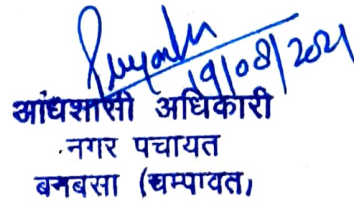 19/08/2021
आधशासी अधिकारी
नगर पचायत
बनबसा (चम्पावत)